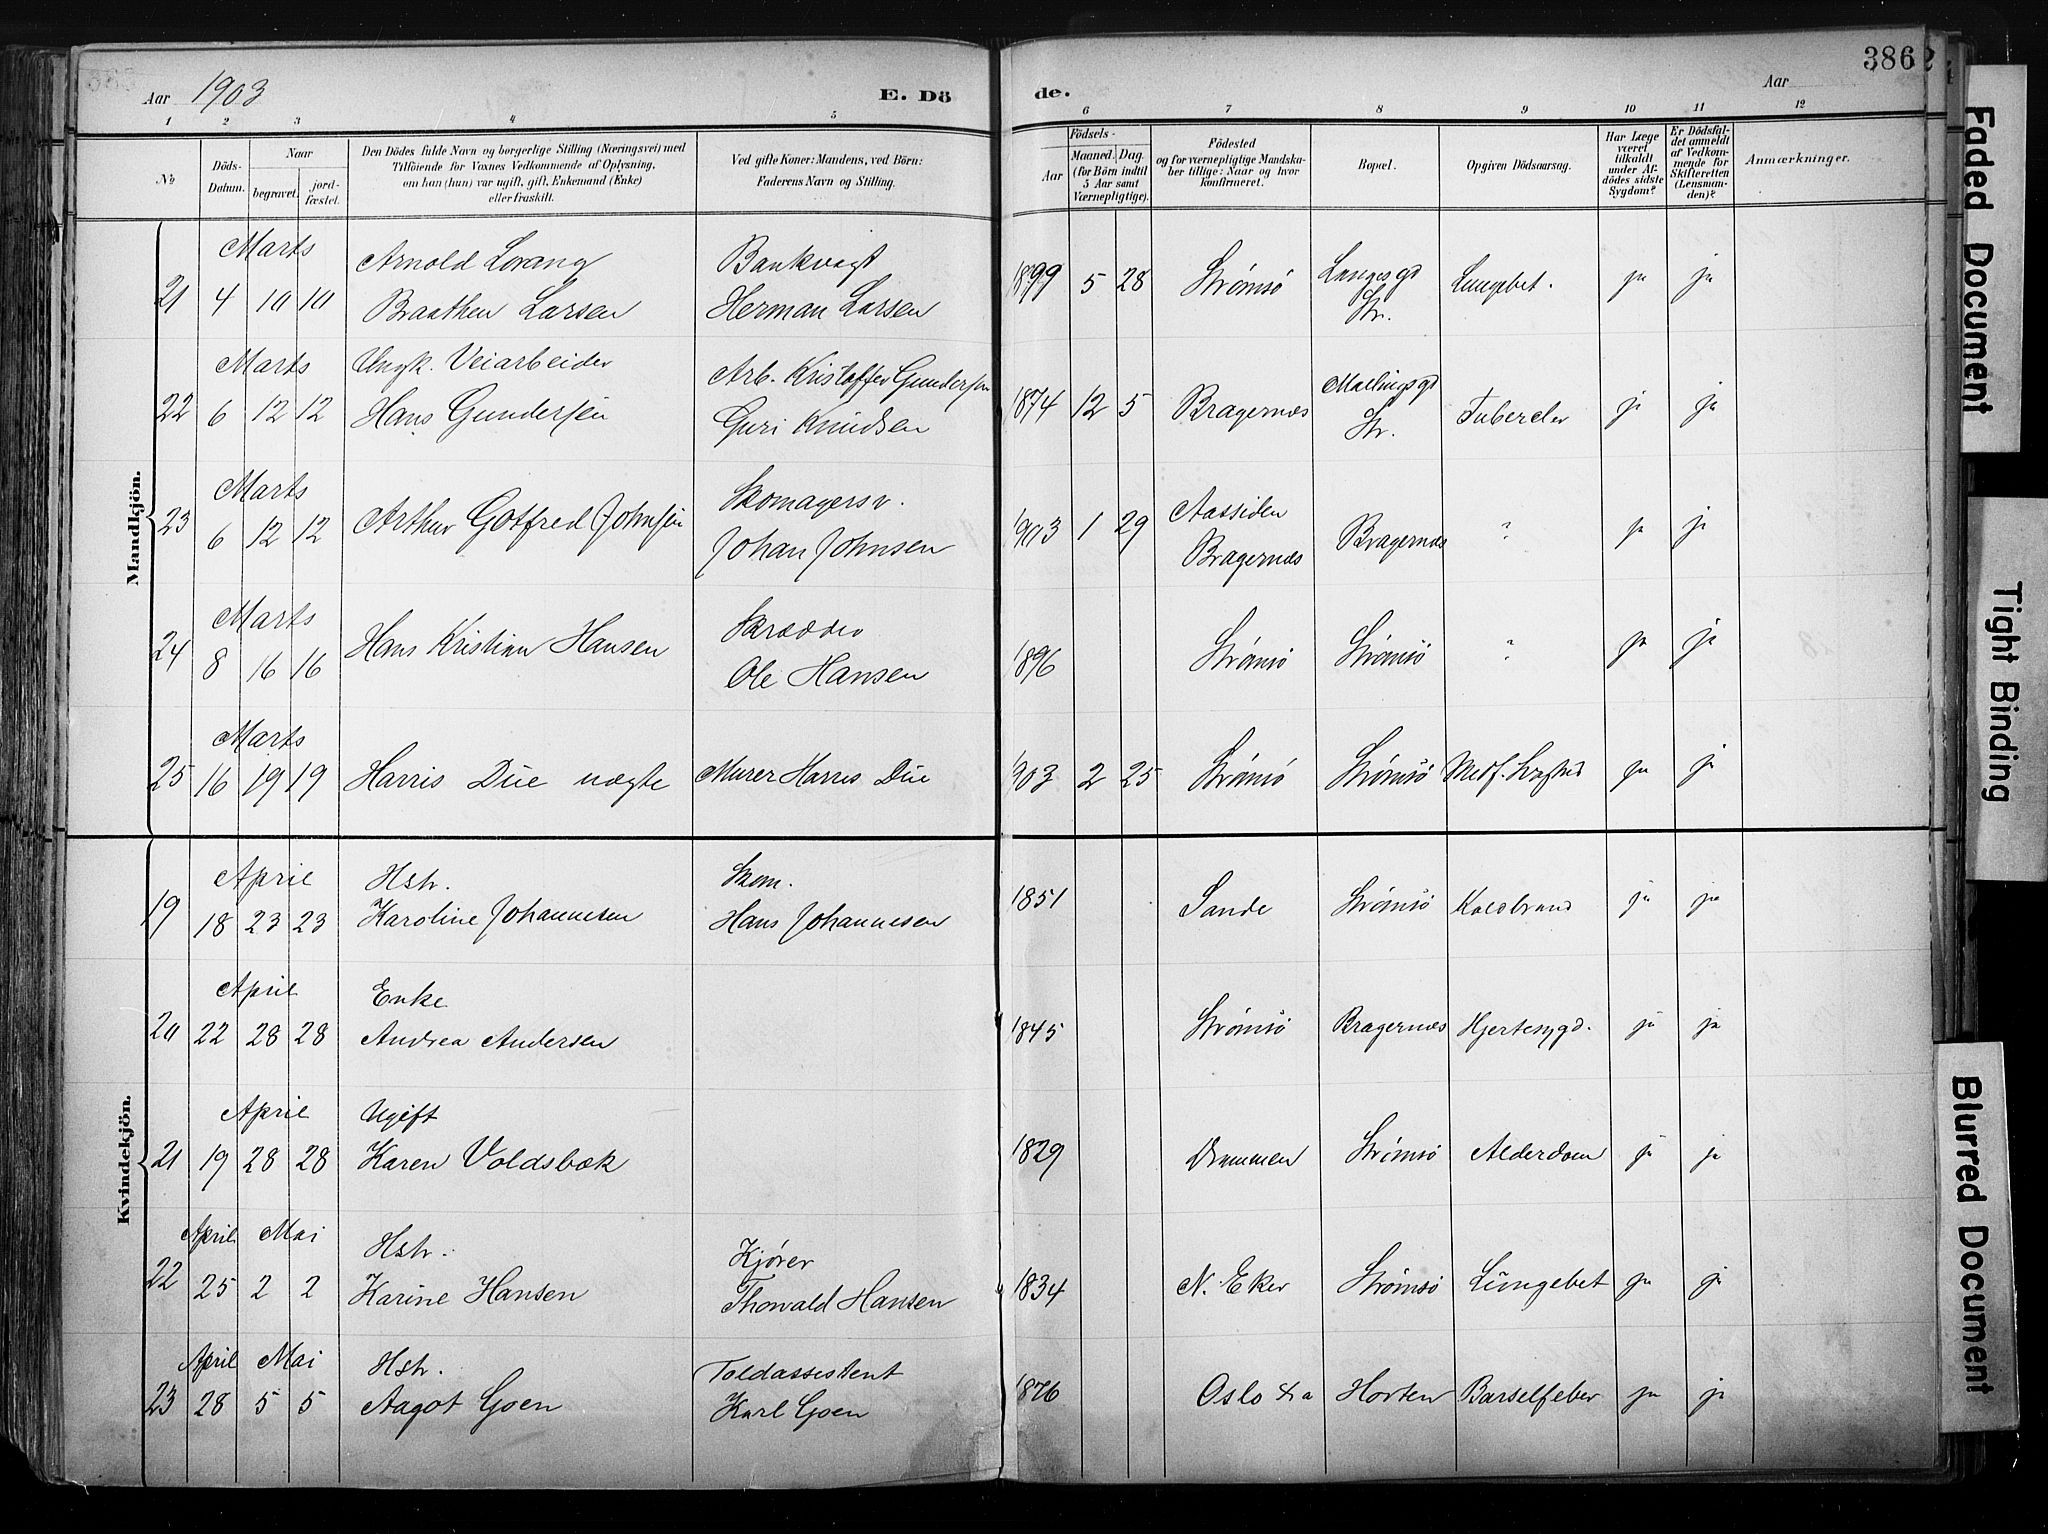 385
Aar 1903
E. Dö
de.
Aar
386
1 2 3 4 5 6 7 8 9 10 11 12
No
Döds-Datum.
Naar
begravet.
jord-fæstet.
Den Dödes fulde Navn og borgerlige Stilling (Næringsvei) med
Tilföiende for Voxnes Vedkommende af Oplysning,
om han (hun) var ugift, gift, Enkemand (Enke)
eller fraskilt.
Ved gifte Koner: Mandens, ved Börn:
Faderens Navn og Stilling.
Födsels-
Aar
Maaned. Dag.
(for Börn indtil
5 Aar samt
Værnepligtige).
Födested
og for værnepligtige Mandska-
ber tillige: Naar og hvor
konfirmeret.
Bopæl.
Opgiven Dödsaarsag.
Har Læge
været
tilkaldt
under Af-
dödes sidste
Sygdom?
Er Dödsfal-
det anmeldt
af Vedkom-
mende for
Skifteretten
(Lensman-
den)?
Anmærkninger.
Mandkjön.
Marts Arnold Lorang Bankvagt
21 4 10 10 Braathen Larsen Herman Larsen 1899 5 28 Strømsö Langesgd Str. Lungebet. ja ja
Marts Ungk. Veiarbeider Arb. Kristoffer Gundersen
22 6 12 12 Hans Gundersen Guri Knudsen 1874 12 5 Bragernæs Mællingsgd Str. Tubercler ja ja
Marts Skomagersv. Aassiden
23 6 12 12 Arthur Gotfred Johnsen Johan Johnsen 1903 1 29 Bragernæs Bragernæs " ja ja
Marts Skrædder
24 8 16 16 Hans Kristian Hansen Ole Hansen 1896 Strømsö Strømsö " ja ja
Marts
25 16 19 19 Harris Due uægte Murer Harris Due 1903 2 25 Strømsö Strømsö Medf. Svaghed ja ja
Kvindekjön.
April Hstr. Skom.
19 18 23 23 Karoline Johannesen Hans Johannesen 1851 Sande Strømsö Koldbrand ja ja
April Enke
20 22 28 28 Andrea Andersen 1845 Strømsö Bragernæs Hjertesygd. ja ja
April Ugift
21 19 28 28 Karen Voldsbæk 1829 Drammen Strømsö Alderdom ja ja
April Mai Hstr. Kjører
22 25 2 2 Karine Hansen Thorvald Hansen 1834 N. Eker Strømsö Lungebet ja ja
April Mai Hstr. Toldassistent
23 28 5 5 Aagot Goen Karl Goen 1876 Oslo Kra Horten Barselfeber ja ja
Faded Document
Tight Binding
Blurred Document